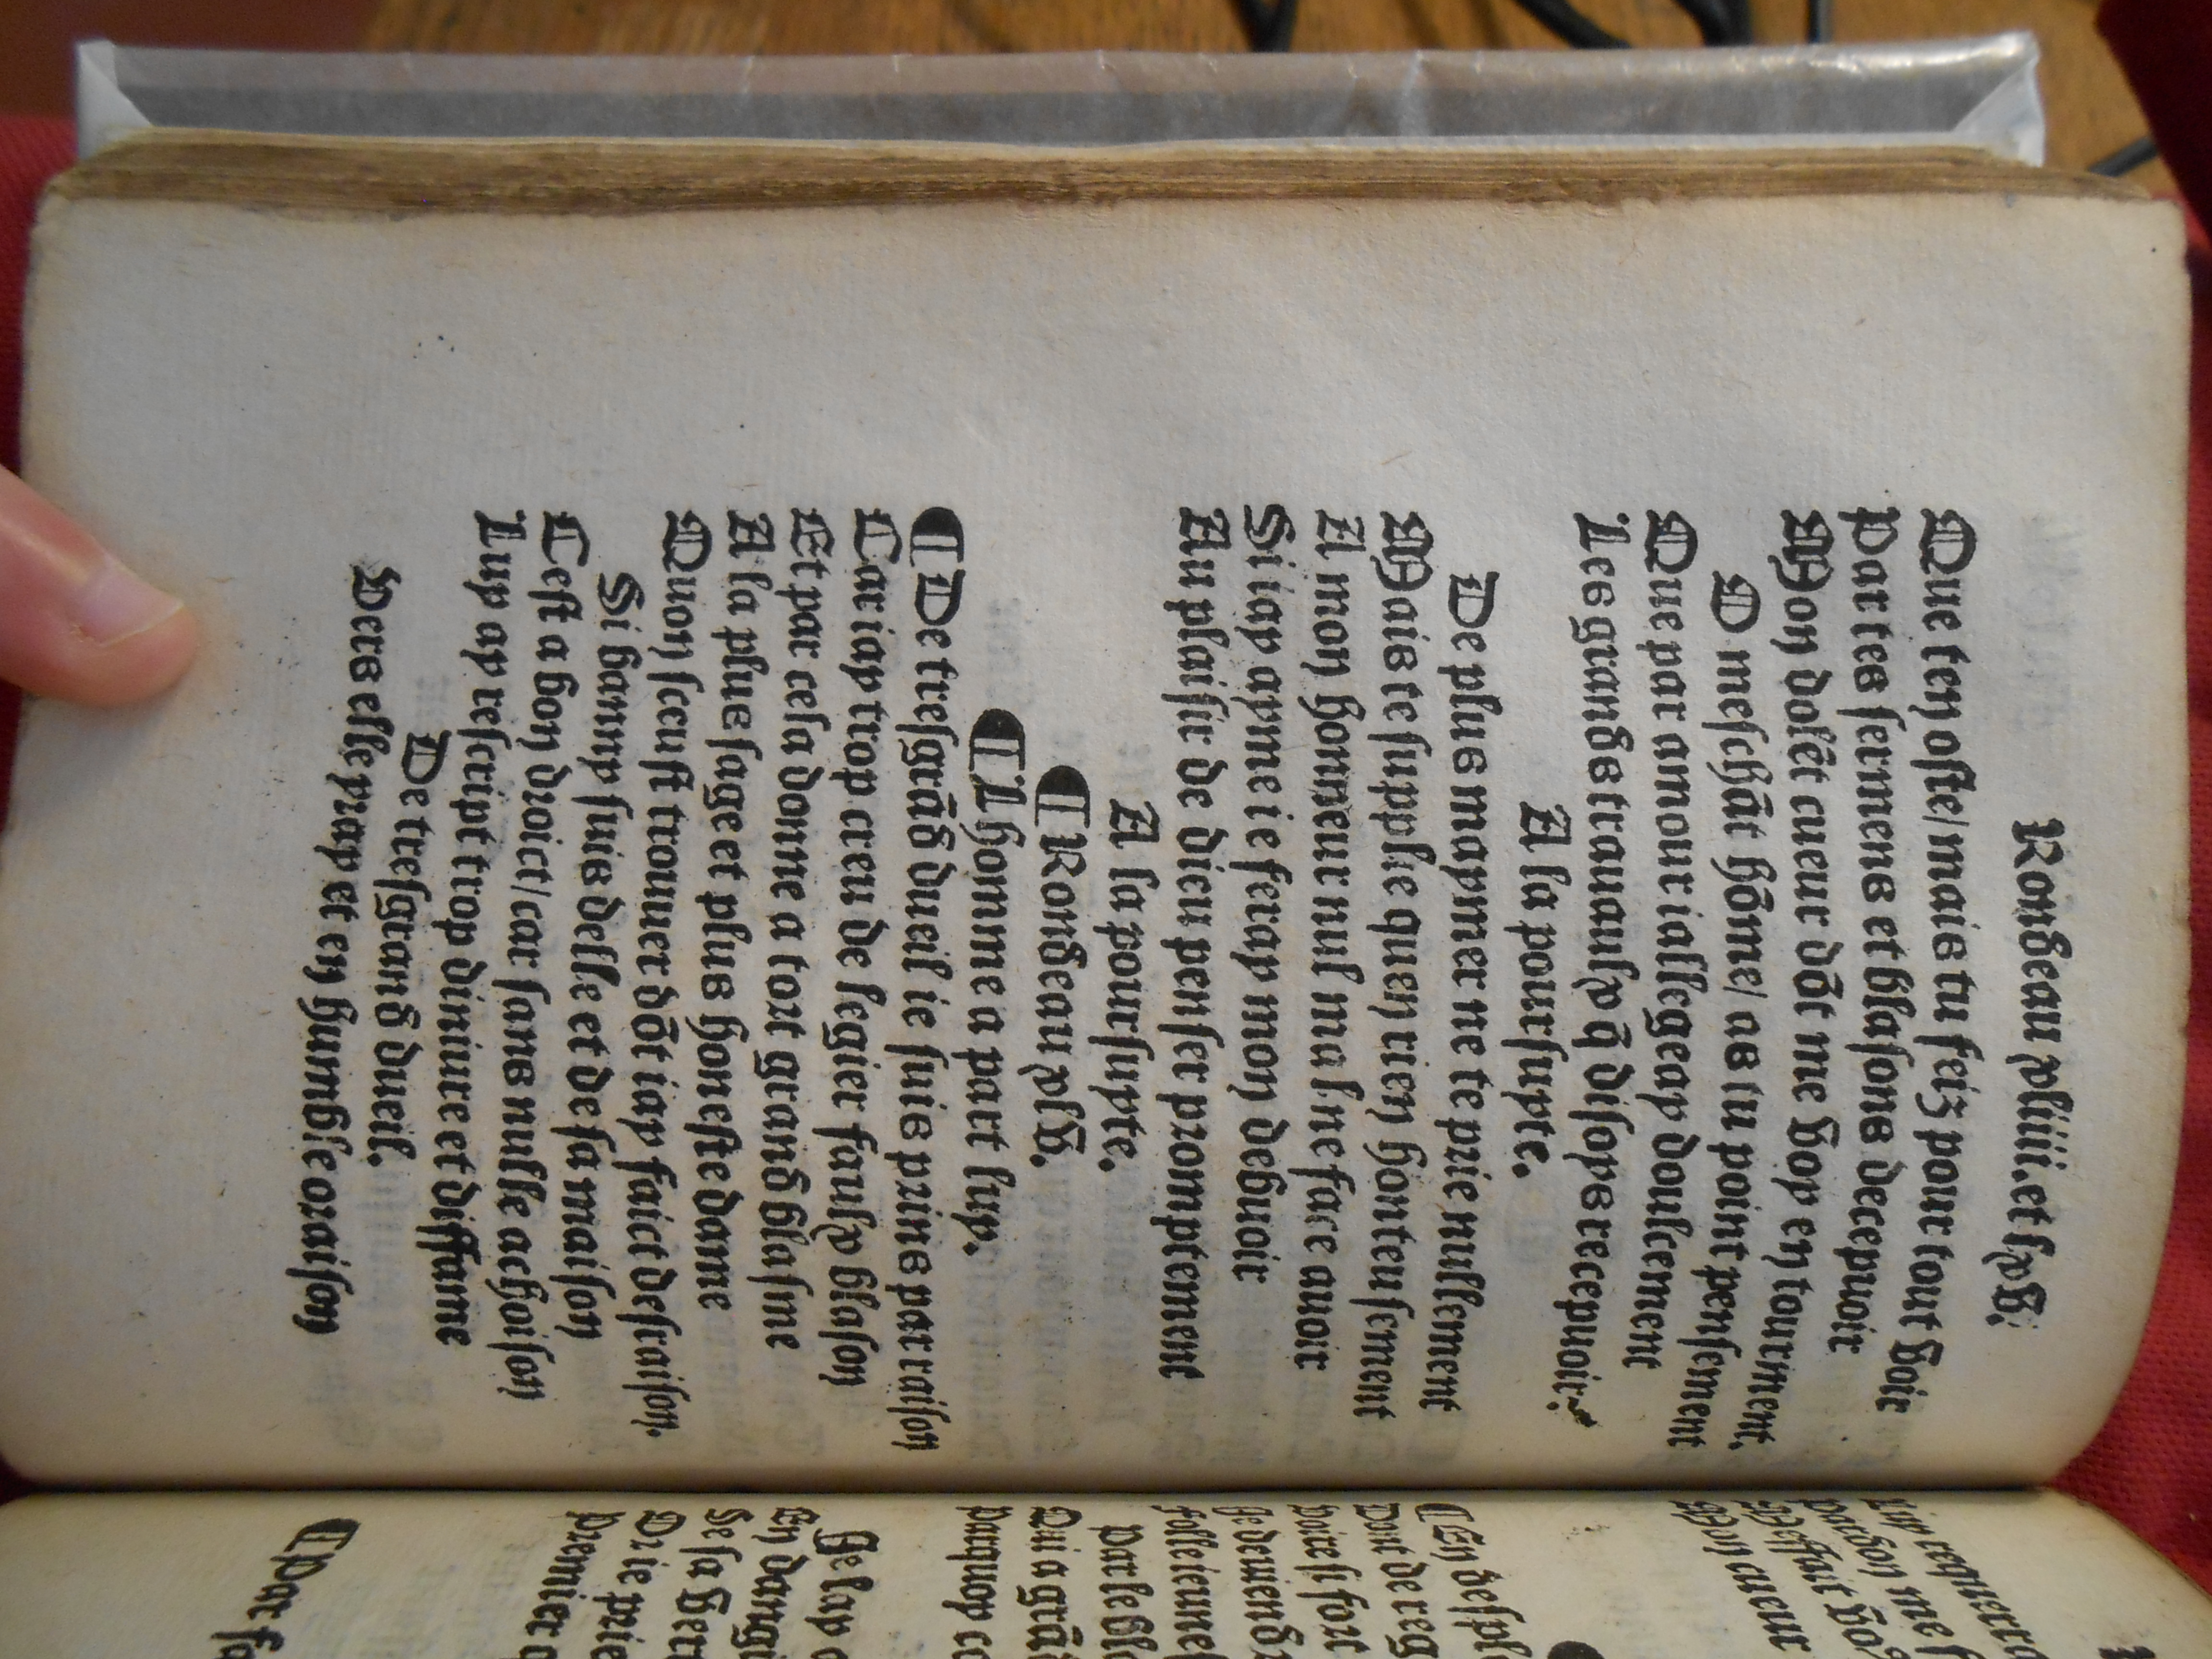 Rondeau xliiii. et lxv.
Que ten oste/ mais tu feiz pour tout voir
Par tes sermens et blasons decepuoir
Mon dolẽt cueur dõt me voy en tourment.
O meschãt hõme/ as tu point pensement
Que par amour iallegeay doulcement
Les grands trauaulx q̃ disoys recepuoir
A la poursuyte.
De plus maymer ne te prie nullement
Mais te supplie quen rien honteusement
A mon honneur nul mal ne face auoir
Si iay ayme ie feray mon debuoir
Au plaisir de dieu penser promptement
A la poursuyte.
¶ Rondeau xlv.
¶ Lhomme a part luy.
¶ De tresgrãd dueil ie suis prins par raison
Car iay trop creu de legier faulx blason
Et par cela donne a tort grand blasme
A la plus sage et plus honeste dame
Quon sceust trouuer dõt iay faict desraison.
Si banny suis delle et de sa maison
Cest a bon droict/ car sans nulle achoison
Luy ay rescript trop diniure et diffame
De tresgrand dueil.
Vers elle yray et en humble oraison
¶ Par fa
Premier q
Drie prie
Se sa vert
En dangi
Ge lay
Parquoy co
Qui a grãd
Par le bl
Follet
Ge deuiend
Dont de reg
¶ En despl